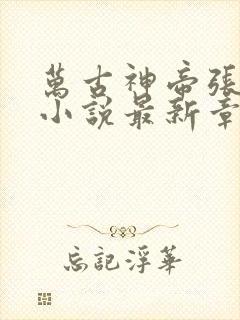 萬古神帝張
小說最新章
忘記浮華